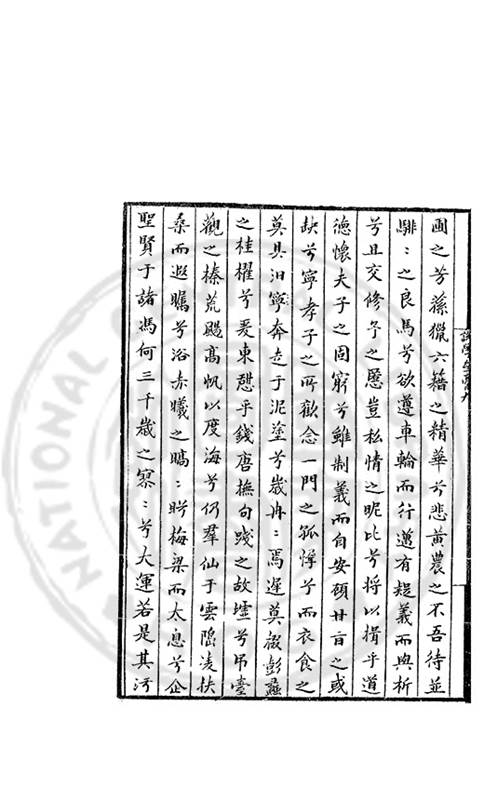 圃之芳蓀獵六籍之精華兮悲黃農之不吾待並
騑〻之良馬兮欲遵車輪而行邁有疑義而與析
兮且交修乎之慝豈私情之昵比兮將以揖乎道
德懷夫子之固窮兮雖制義而自安碩甘旨之或
缺兮寧孝子之所歡念一門之孤惸兮而衣食之
莫具汨寧奔走于泥塗兮歲冉〻焉遲莫放彭蠡
之桂櫂兮爰東憩乎錢唐撫句踐之故墟兮弔臺
觀之榛荒颺高帆以度海兮仍羣仙于雲陰凌扶
桑而遐矚兮浴赤曦之暠〻盻梅梁而太息兮企
聖賢于諸馮何三千歲之寥〻兮大運若是其
NATIONAL CENTRAL